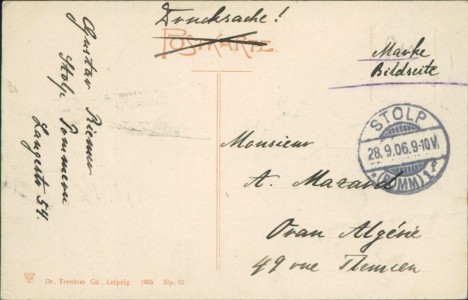 Drucksache!
POSTKARTE
Marke
Bildseite
Gustav
Stolp Pommern
Langestr. 54.
STOLP
28.9.06.9-10V.
(POMM) 1f
Monsieur
A. Mazard
Oran Algérie
49 rue Tlemcen
Dr. Trenkler Co., Leipzig. 1905 Stp. 57